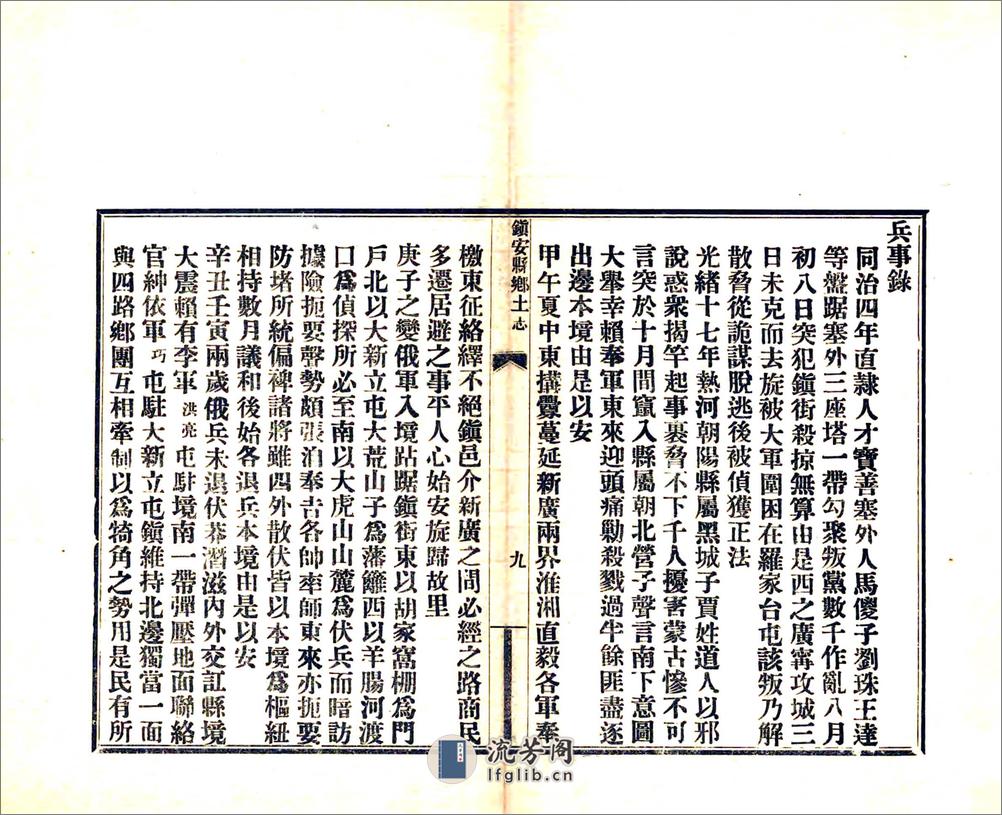 兵事錄
同治四年直隸人才寶善塞外人馬傻子劉珠王達
等盤踞塞外三座塔一帶勾聚叛黨數千作亂八月
初八日突犯鎭街殺掠無算由是西之廣甯攻城三
日未克而去旋被大軍圍困在羅家台屯該叛乃解
散脅從詭謀脫逃後被偵獲正法
光緒十七年熱河朝陽縣屬黑城子賈姓道人以邪
說惑衆揭竿起事裹脅不下千人擾害蒙古慘不可
言突於十月間竄入縣屬朝北營子聲言南下意圖
大舉幸賴奉軍東來迎頭痛勦殺戮過半餘匪盡逐
出邊本境由是以安
甲午夏中東搆釁蔓延新廣兩界淮湘直毅各軍奉
鎭安縣鄕土志
九
檄東征絡繹不絕鎭邑介新廣之間必經之路商民
多遷居避之事平人心始安旋歸故里
庚子之變俄軍入境跕踞鎭街東以胡家窩棚爲門
戶北以大新立屯大荒山子爲藩籬西以羊腸河渡
口爲偵探所必至南以大虎山山麓爲伏兵而暗訪
據險扼要聲勢頗張洎奉吉各帥率師東來亦扼要
防堵所統偏裨諸將雖四外散伏皆以本境爲樞紐
相持數月議和後始各退兵本境由是以安
辛丑壬寅兩歲俄兵未退伏莽潛滋內外交訌縣境
大震賴有李軍洪亮屯駐境南一帶彈壓地面聯絡
官紳依軍巧屯駐大新立屯鎭維持北邊獨當一面
與四路鄕團互相牽制以爲犄角之勢用是民有所
流芳阁
lfglib.cn